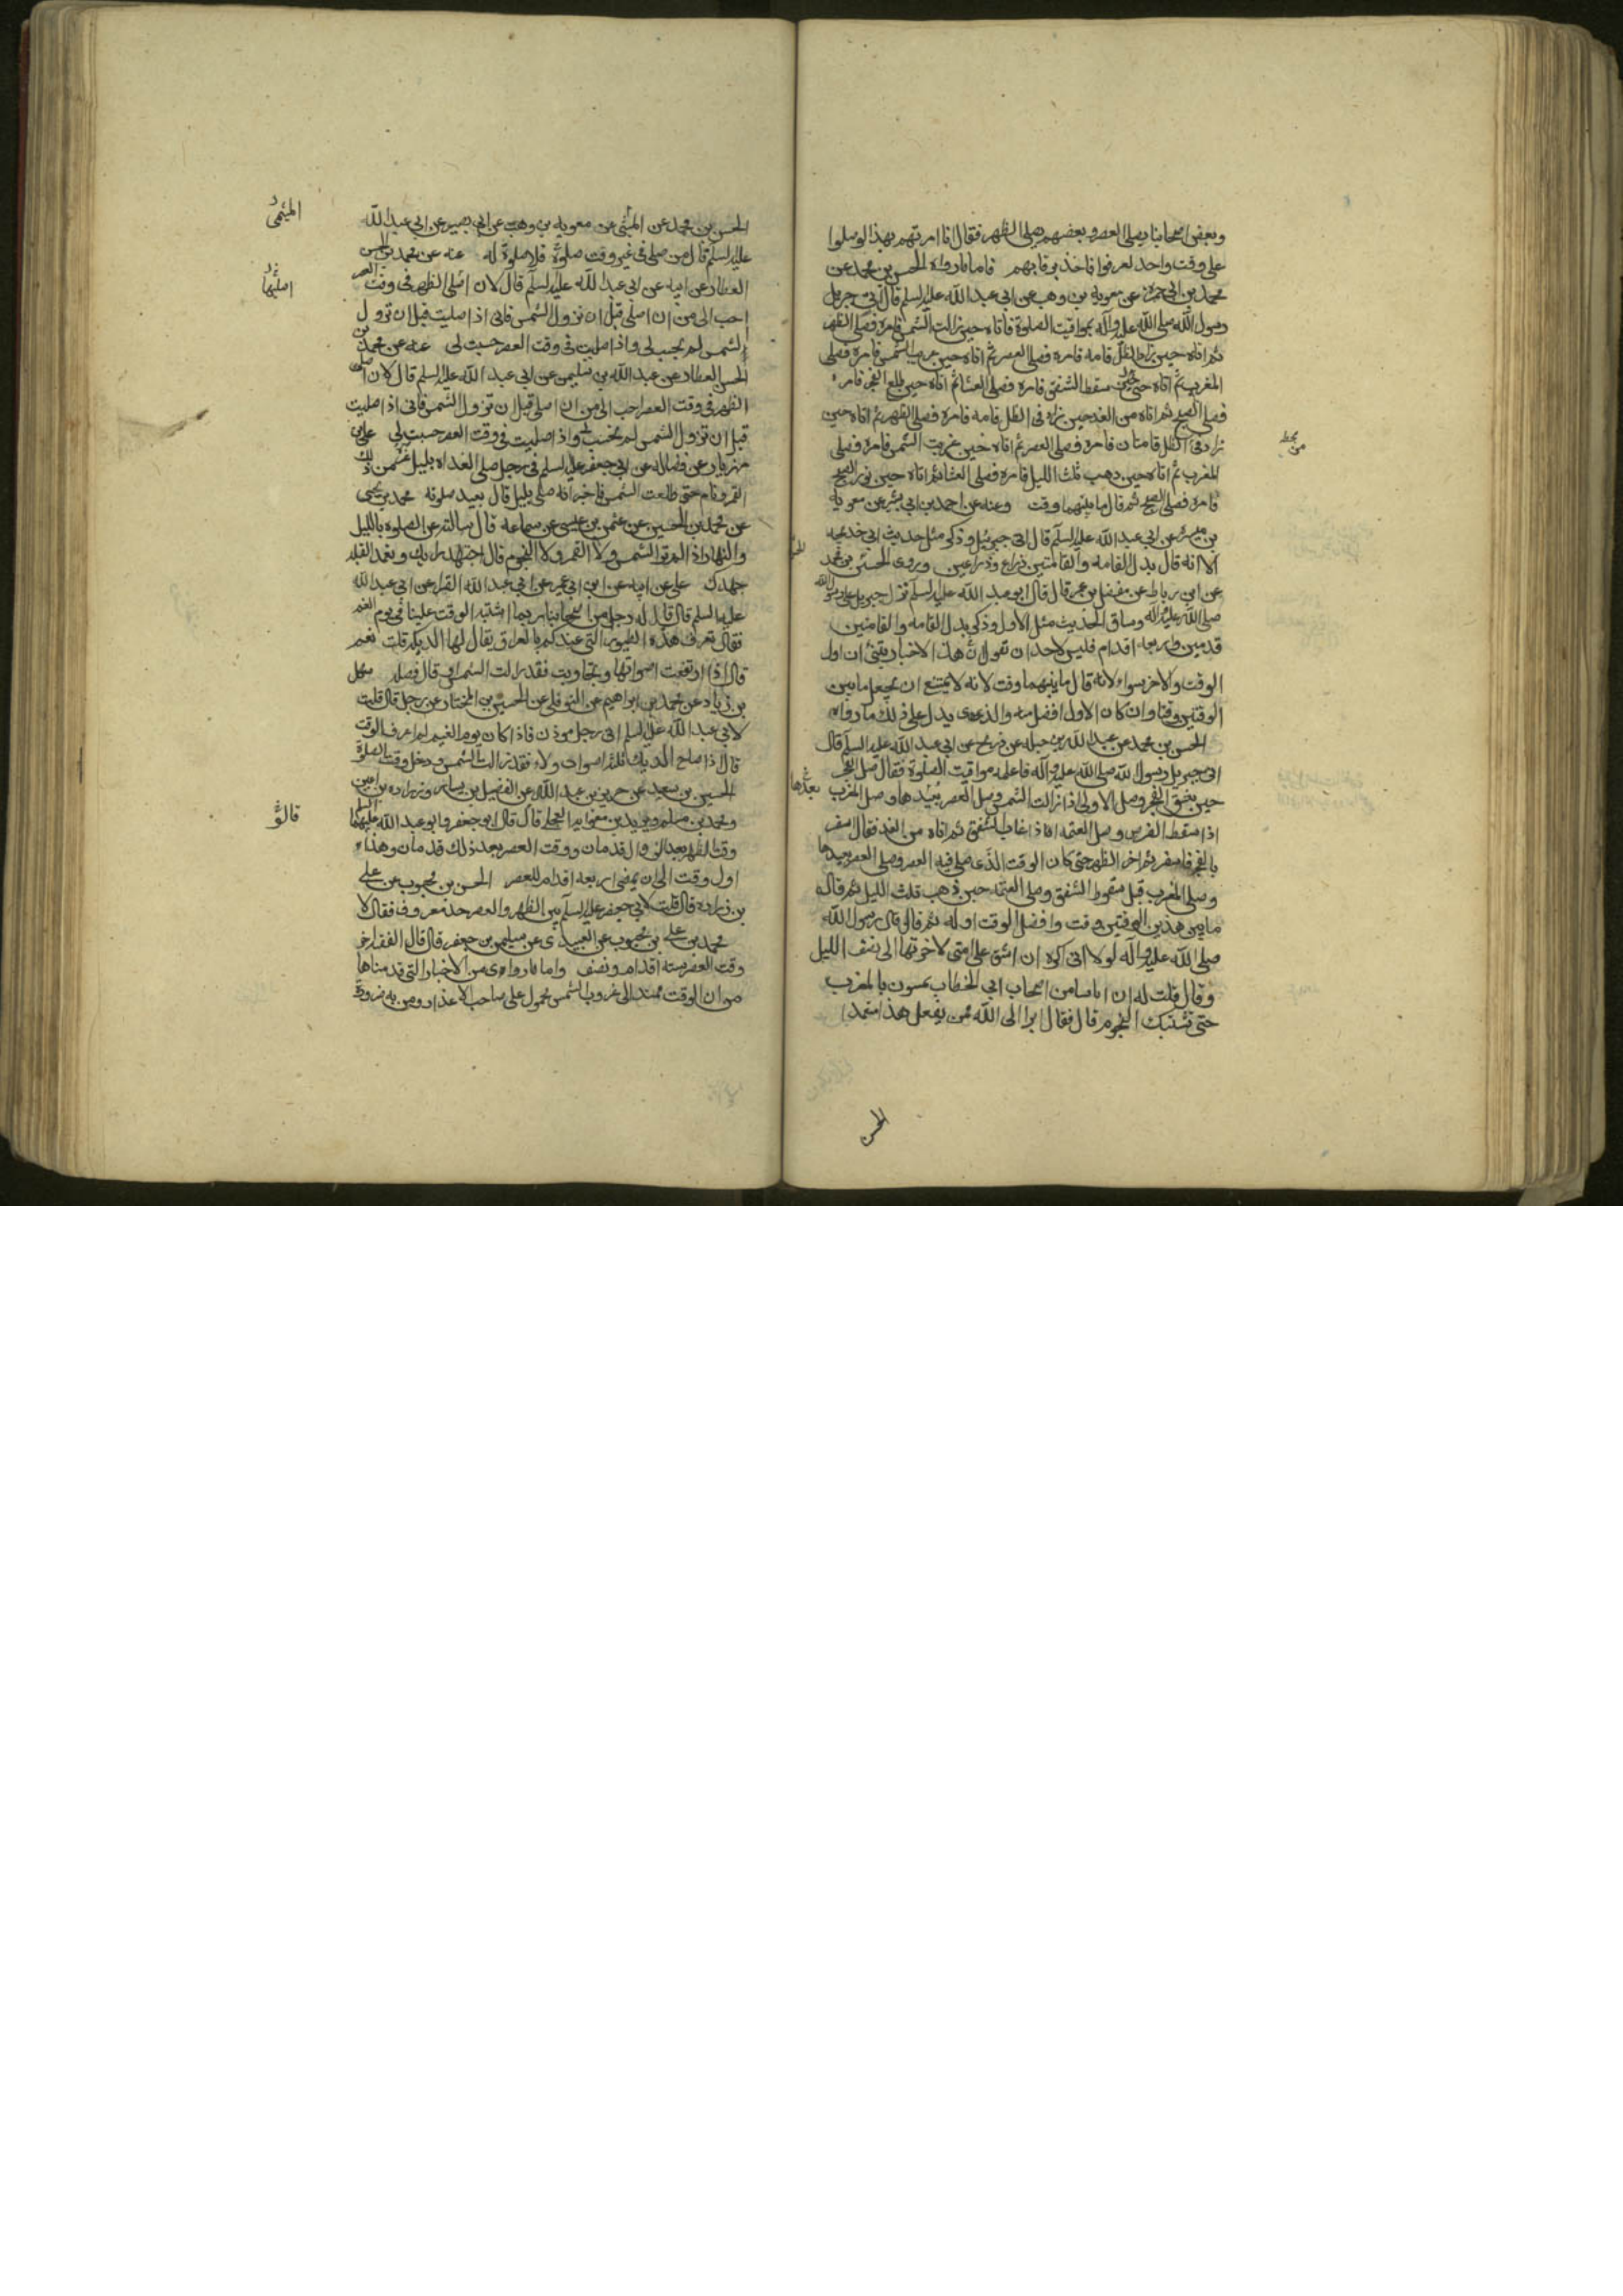 وبعض اصحابنا يصلى العصر وبعضهم يصلى الظهر فقال انا امرتهم بهذا لو صلوا
على وقت واحد لعرفوا فاخذ برقابهم فاما ما رواه الحسن بن محمد عن
محمد بن ابى حمزه عن معويه بن وهب عن ابى عبد الله عليه السلم قال اتى جبريل
رسول الله صلى الله عليه وآله بمواقيت الصلوة فاتاه حين زالت الشمس فامره فصلى الظهر
ثم اتاه حين زاد الظل قامه فامره فصلى العصر ثم اتاه حين غربت الشمس فامره فصلى
المغرب ثم اتاه حين سقط الشفق فامره فصلى العشا ثم اتاه حين طلع الفجر فامره
فصلى الصبح ثم اتاه من الغد حين زاد فى الظل قامه فامره فصلى الظهر ثم اتاه حين
زاد فى الظل قامتان فامره فصلى العصر ثم اتاه حين غربت الشمس فامره فصلى
المغرب ثم اتاه حين ذهب ثلث الليل فامره فصلى العشا ثم اتاه حين نور الصبح
فامره فصلى الصبح ثم قال ما بينهما وقت وعنه عن احمد بن ابى بشر عن معويه
بن ميسره عن ابى عبد الله عليه السلم قال اتى جبرئيل وذكر مثل حديث ابى خديجه
الا انه قال بدل القامه والقامتين ذراع وذراعين وروى الحسن بن محمد
عن ابن رباط عن مفضل بن عمر قال قال ابو عبد الله عليه السلم نزل جبريل على رسول الله
صلى الله عليه وآله وساق الحديث مثل الاول وذكر بدل القامه والقامتين
قدمين واربعه اقدام فليس لاحد ان تقول ان هذه الاخبار ان اول
الوقت والاخر سواء لانه قال ما بينهما وقت لانه لا يمتنع ان يجعل ما بين
الوقتين وقتا وان كان الاول افضل منه والذى يدل على ذلك ما رواه
الحسن بن محمد عن عبد الله بن جبله عن ذريح عن ابى عبد الله عليه السلم قال
اتى جبريل رسول الله صلى الله عليه وآله فاعلمه مواقيت الصلوة فقال صل الفجر
حين ينشق الفجر وصل الاولى اذا زالت الشمس وصل العصر بعيدها وصل المغرب
اذا سقط القرص وصل العتمه اذا غاب الشفق ثم اتاه من الغد فقال اسفر
بالفجر فاسفر ثم اخر الظهر حتى كان الوقت الذى صلى فيه العصر وصلى العصر بعيدها
وصلى المغرب قبل سقوط الشفق وصلى العتمه حين ذهب ثلث الليل ثم قال
ما بين هذين الوقتين وقت وافضل الوقت اوله ثم قال قال رسول الله
صلى الله عليه وآله لولا انى اكره ان اشق على امتى لاخرتها الى نصف الليل
وقال قلت له ان اناسا من اصحاب ابى الخطاب يمسون بالمغرب
حتى تشتبك النجوم قال فقال ابرا الى الله ممن يفعل هذا متعمدا
بعدها
الحسن
الحسن بن محمد عن المثنى عن معويه بن وهب عن ابى بصير عن ابى عبد الله
عليه السلم قال من صلى فى غير وقت صلوة فلا صلوة له عنه عن محمد بن الحسن
العطار عن ابيه عن ابى عبد الله عليه السلم قال لان اصلى الظهر فى وقت العصر
احب الى من ان اصلى قبل ان تزول الشمس فانى اذا صليت قبل ان تزول
الشمس لم يحسب لى واذا صليت فى وقت العصر حسبت لى عنه عن محمد بن
الحسن العطار عن عبد الله بن سليمن عن ابى عبد الله عليه السلم قال لان اصلى
الظهر فى وقت العصر احب الى من ان اصلى قبل ان تزول الشمس فانى اذا صليت
قبل ان تزول الشمس لم تحسب لى واذا صليت فى وقت العصر حسبت لى على بن
مهزيار عن فضاله عن ابى جعفر عليه السلم فى رجل صلى الغداه بليل غره من ذلك
القمر ونام حتى طلعت الشمس فاخبر انه صلى بليل قال يعيد صلوته محمد بن يحيى
عن محمد بن الحسين عن عثمن بن عيسى عن سماعه قال سالته عن الصلوه بالليل
والنهار اذا لم تر الشمس ولا القمر ولا النجوم قال اجتهد رايك وتعمد القبله
جهدك على عن ابيه عن ابن ابى عمير عن ابى عبد الله الفرا عن ابى عبد الله
عليه السلم قال قال له رجل من اصحابنا ربما اشتبه الوقت علينا فى يوم الغيم
فقال تعرف هذه الطيور التى عندكم بالعراق يقال لها الديكه قلت نعم
قال اذا ارتفعت اصواتها وتجاوبت فقد زالت الشمس او قال فصله سهل
بن زياد عن محمد بن ابراهيم عن النوفلى عن الحسين بن المختار عن رجل قال قلت
لابى عبد الله عليه السلم انى رجل موذن فاذا كان يوم الغيم لم اعرف الوقت
قال اذا صاح الديك ثلثه اصوات ولاء فقد زالت الشمس ودخل وقت الصلوة
الحسين بن سعيد عن حريز بن عبد الله عن الفضيل بن يسار وزراره بن اعين
ومحمد بن مسلم وبريد بن معويه العجلى قال قال ابو جعفر وابو عبد الله عليهما السلم
وقت الظهر بعد الزوال قدمان ووقت العصر بعد ذلك قدمان وهذا
اول وقت الى ان يمضى اربعه اقدام للعصر الحسن بن محبوب عن على
بن زراره قال قلت لابى جعفر عليه السلم بين الظهر والعصر حد معروف فقال لا
محمد بن على بن محبوب عن العبيدى عن سليمن بن جعفر قال قال الفقيه اخر
وقت العصر سته اقدام ونصف واما ما روى من الاخبار التى قدمناها
من ان الوقت ممتد الى غروب الشمس محمول على صاحب الاعذار ومن به ضرورة
الميثمى
اصليها
قالوا